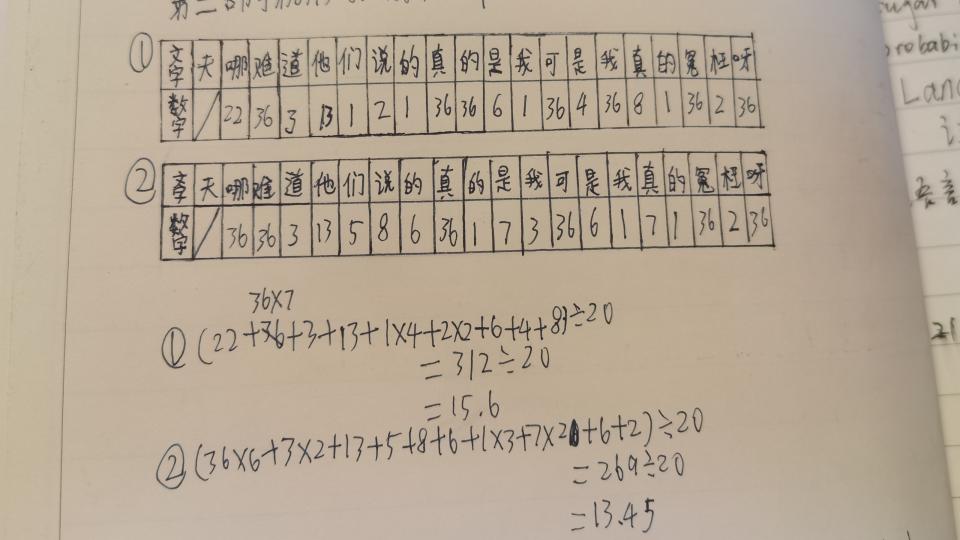 ①
文字 天 哪 难 道 他 们 说 的 真 的 是 我 可 是 我 真 的 冤 枉 呀
数字 / 22 36 3 13 1 2 1 36 36 6 1 36 4 36 8 1 36 2 36
②
文字 天 哪 难 道 他 们 说 的 真 的 是 我 可 是 我 真 的 冤 枉 呀
数字 / 36 36 3 13 5 8 6 36 1 7 3 36 6 1 7 1 36 2 36
36×7
①(22+36+3+13+1×4+2×2+6+4+8)÷20
=312÷20
=15.6
②(36×6+3×2+13+5+8+6+1×3+7×2+6+2)÷20
=269÷20
=13.45
ugar
robabi
Lan
语言
21